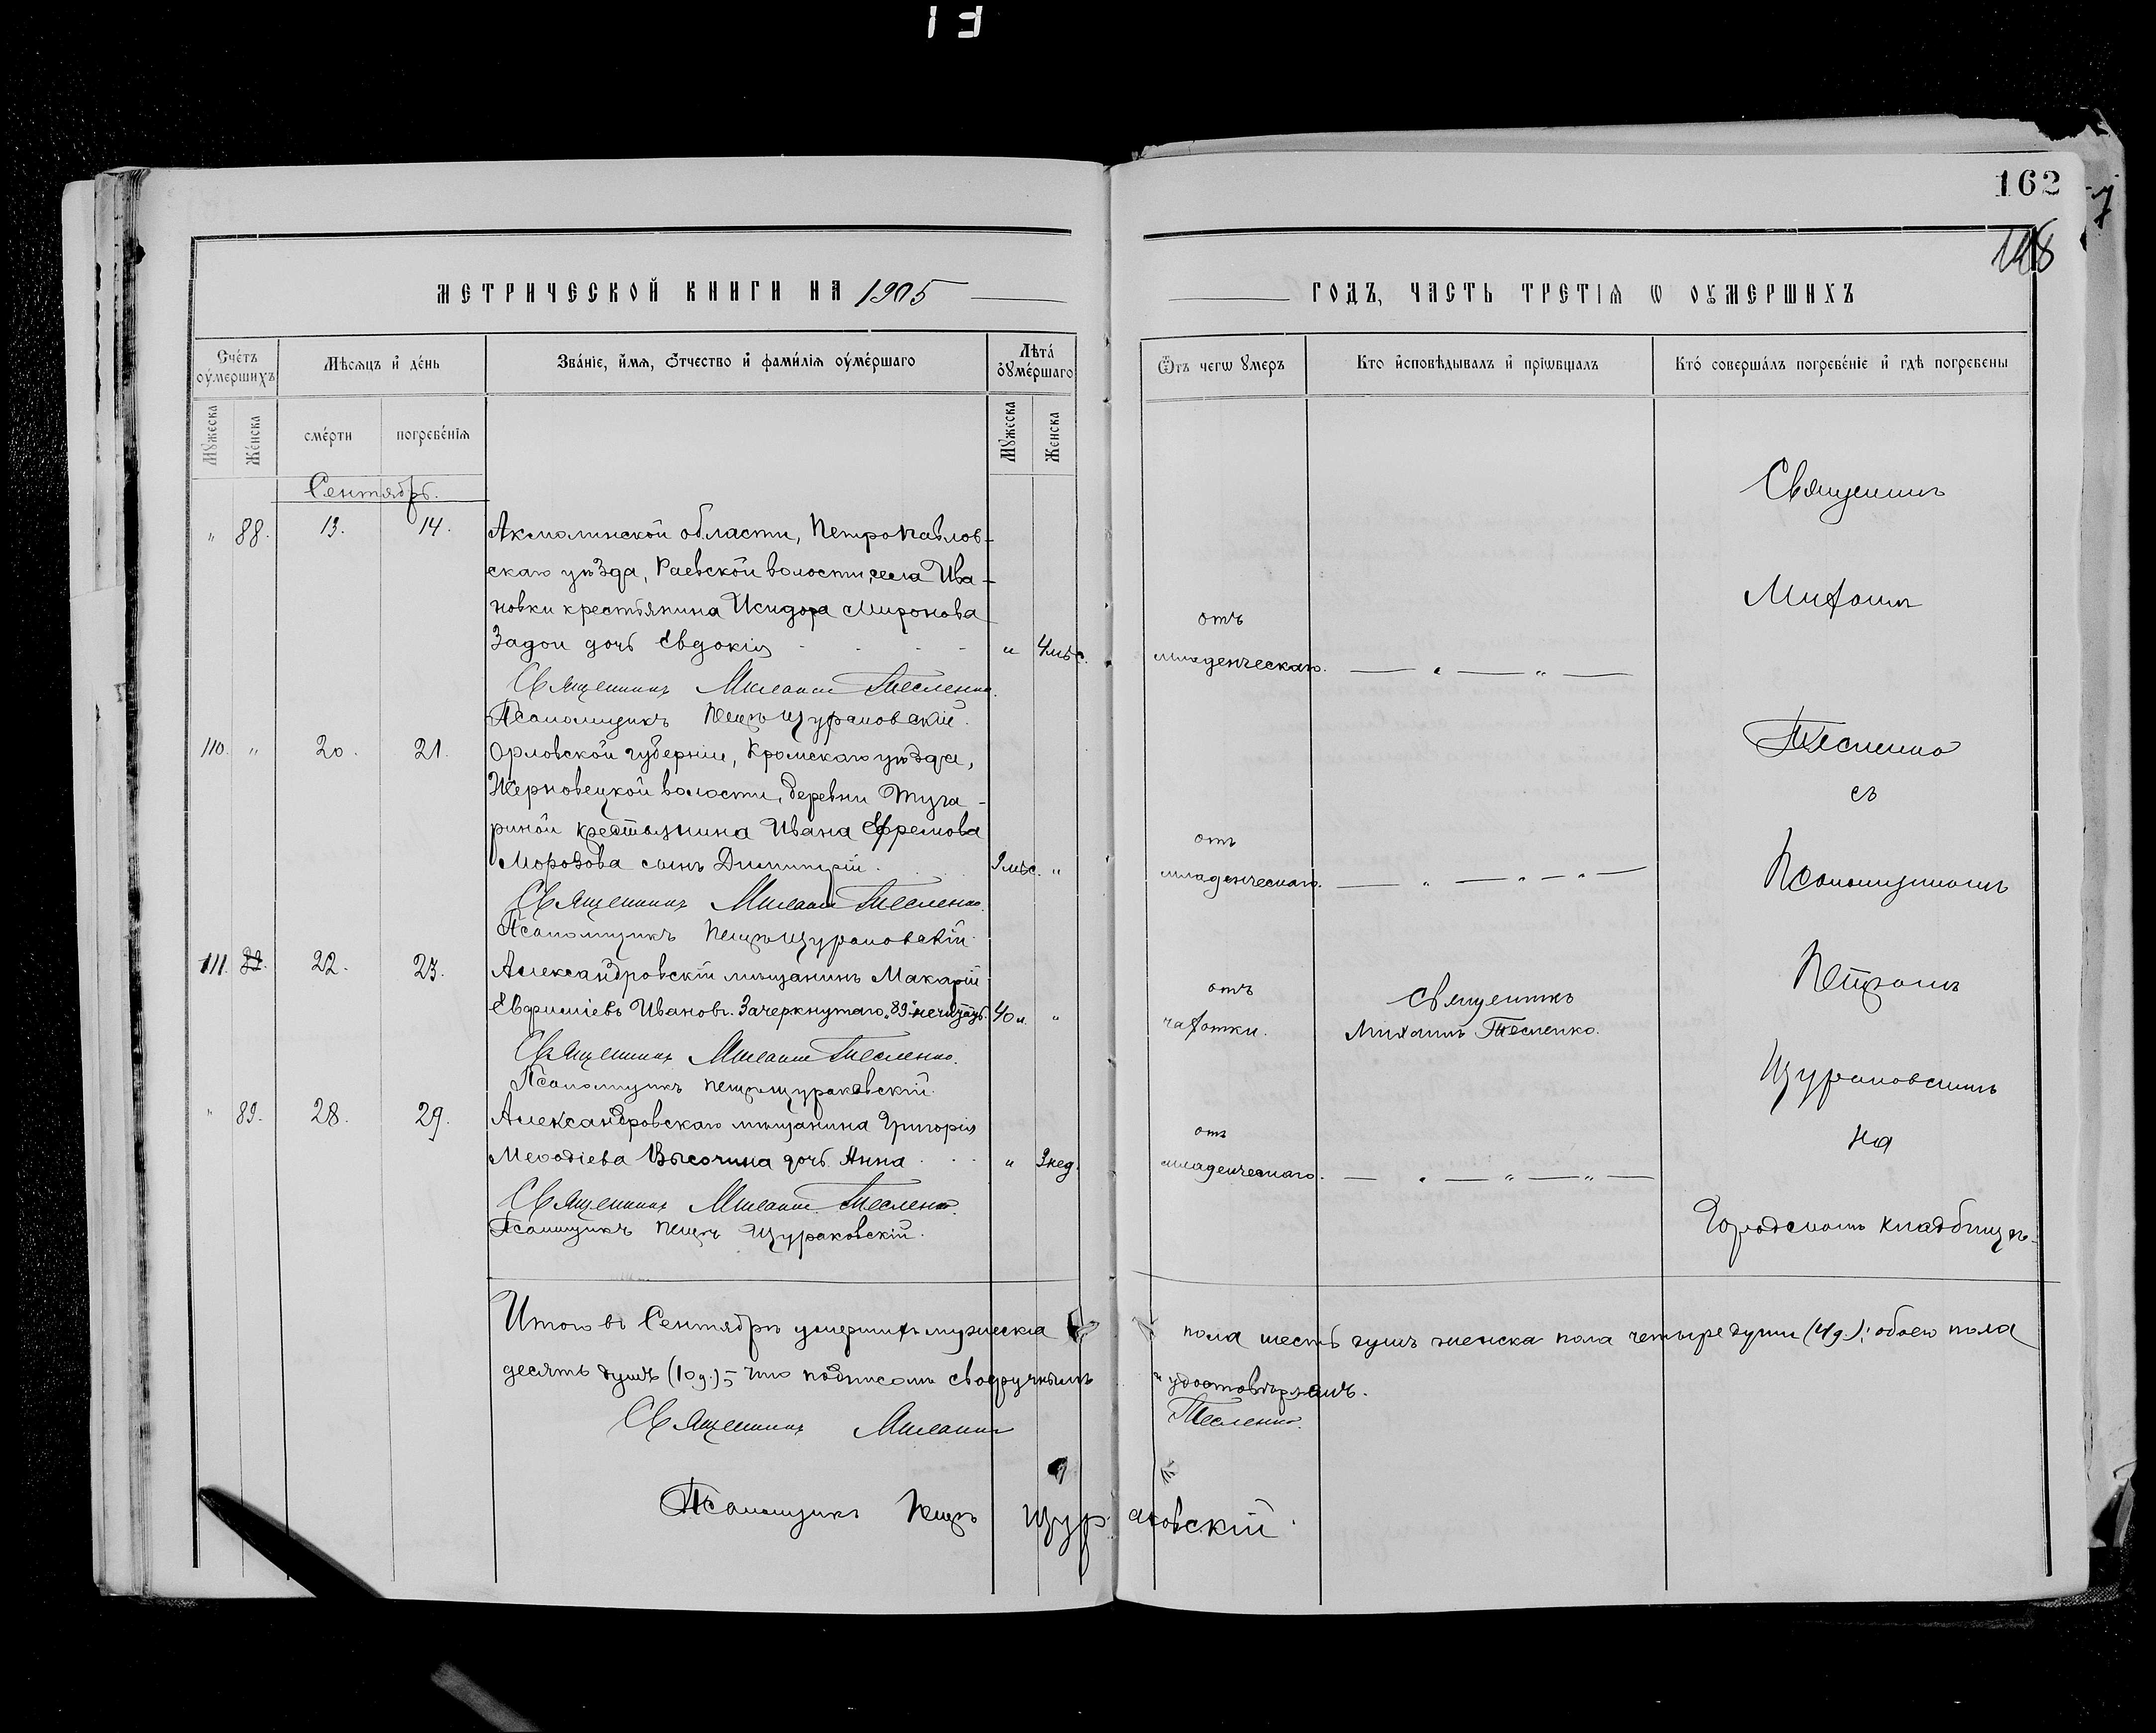 162
148
МЕТРИЧЕСКОЙ КНИГИ НА 1905
ГОДЪ, ЧАСТЬ ТРЕТІѦ Ѡ ОУМЕРШИХЪ
Счетъ оумершихъ
Мѣсяцъ и день
Званіе, имя, отчество и фамилія оумершаго
Лѣта оумершаго
Мужеска
Женска
смерти
погребенія
Мужеска
Женска
Ѿъ чегѡ умеръ
Кто исповѣдывалъ и пріѡбщалъ
Кто совершалъ погребеніе и гдѣ погребены
Сентябрь.
" 88. 13. 14. Акмолинской области, Петропавлов-
скаго уѣзда, Раевской волости, села Ива-
новки крестьянина Исидора Миронова
Задои дочь Евдокія " 4 мѣс. отъ младенческаго. — " — " —
Священникъ Михаилъ Тесленко.
Псаломщикъ Петръ Щураковскій.
110. " 20. 21. Орловской губерніи, Кромскаго уѣзда,
Жерновецкой волости, деревни Туга-
риной крестьянина Ивана Ефремова
Морозова сынъ Димитрій. 9 мѣс. " отъ младенческаго. — " — " — " —
Священникъ Михаилъ Тесленко.
Псаломщикъ Петръ Щураковскій.
111. 89. 22. 23. Александровскій мѣщанинъ Макарій
Евфиміевъ Ивановъ. Зачеркнутаго "89" не читать. 40 л. " отъ чахотки. Священникъ Михаилъ Тесленко.
Священникъ Михаилъ Тесленко.
Псаломщикъ Петръ Щураковскій.
" 89. 28. 29. Александровскаго мѣщанина Григорія
Меѳодіева Высочина дочь Анна " 3 нед. отъ младенческаго. — " — " — " —
Священникъ Михаилъ Тесленко.
Псаломщикъ Петръ Щураковскій.
Священникъ
Михаилъ
Тесленко
съ
Псаломщикомъ
Петромъ
Щураковскимъ
на
Городскомъ кладбищѣ.
Итого въ Сентябрѣ умершихъ мужеска пола шесть душъ женска пола четыре души (4 д.); обоего пола
десять душъ (10 д.); что подписомъ своеручнымъ и удостовѣряемъ.
Священникъ Михаилъ Тесленко.
Псаломщикъ Петръ Щураковскій.